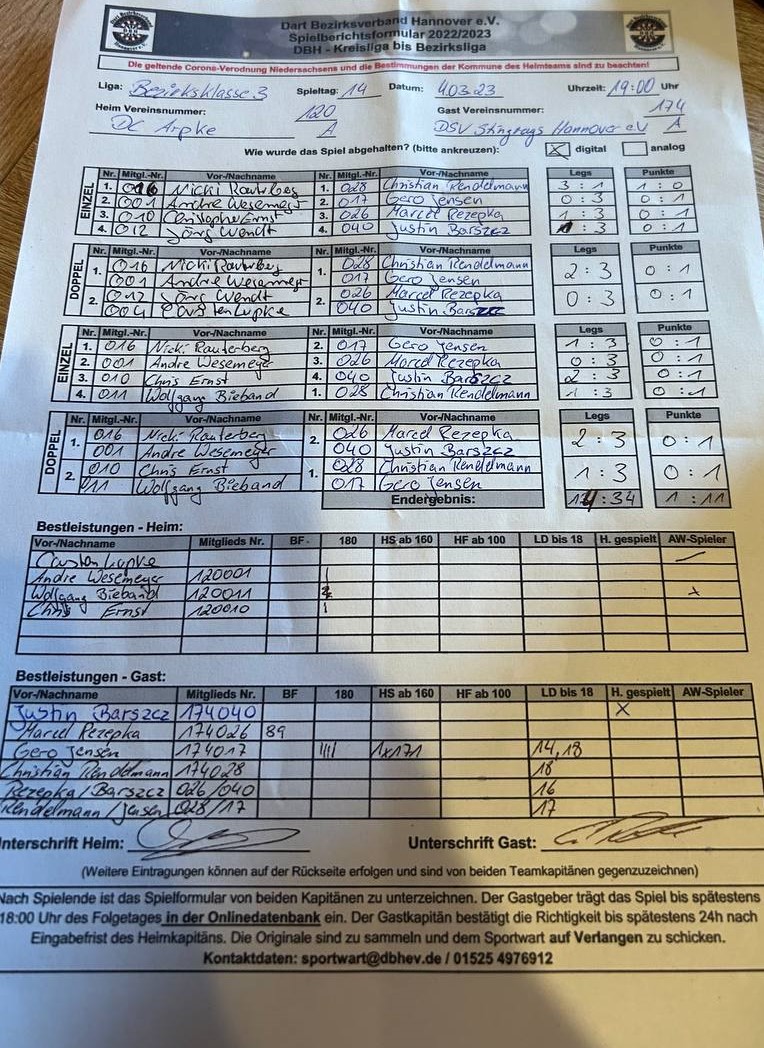 Dart Bezirksverband Hannover e.V.
Spielberichtsformular 2022/2023
DBH - Kreisliga bis Bezirksliga
Die geltende Corona-Verodnung Niedersachsens und die Bestimmungen der Kommune des Heimteams sind zu beachten!
Liga: Bezirksklasse 3 Spieltag: 14 Datum: 4.03.23 Uhrzeit: 19:00 Uhr
Heim Vereinsnummer: 120 Gast Vereinsnummer: 174
DC Arpke A DSV Stingrays Hannover e.V A
Wie wurde das Spiel abgehalten? (bitte ankreuzen): X digital analog
EINZEL
Nr. Mitgl.-Nr. Vor-/Nachname Nr. Mitgl.-Nr. Vor-/Nachname Legs Punkte
1. 016 Nicki Rauterberg 1. 028 Christian Rendelmann 3 : 1 1 : 0
2. 001 Andre Wesemeyer 2. 017 Gero Jensen 0 : 3 0 : 1
3. 010 Christopher Ernst 3. 026 Marcel Rezepka 1 : 3 0 : 1
4. 012 Jörg Wendt 4. 040 Justin Barszcz : 3 0 : 1
DOPPEL
Nr. Mitgl.-Nr. Vor-/Nachname Nr. Mitgl.-Nr. Vor-/Nachname Legs Punkte
1. 016 Nicki Rauterberg 1. 028 Christian Rendelmann 2 : 3 0 : 1
001 Andre Wesemeyer 017 Gero Jensen
2. 012 Jörg Wendt 2. 026 Marcel Rezepka 0 : 3 0 : 1
004 Lupke 040 Justin Barszcz
EINZEL
Nr. Mitgl.-Nr. Vor-/Nachname Nr. Mitgl.-Nr. Vor-/Nachname Legs Punkte
1. 016 Nicki Rauterberg 2. 017 Gero Jensen 1 : 3 0 : 1
2. 001 Andre Wesemeyer 3. 026 Marcel Rezepka 0 : 3 0 : 1
3. 010 Chris Ernst 4. 040 Justin Barszcz 2 : 3 0 : 1
4. 011 Wolfgang Bieband 1. 028 Christian Rendelmann 1 : 3 0 : 1
DOPPEL
Nr. Mitgl.-Nr. Vor-/Nachname Nr. Mitgl.-Nr. Vor-/Nachname Legs Punkte
1. 016 Nicki Rauterberg 2. 026 Marcel Rezepka 2 : 3 0 : 1
001 Andre Wesemeyer 040 Justin Barszcz
2. 010 Chris Ernst 1. 028 Christian Rendelmann 1 : 3 0 : 1
11 Wolfgang Bieband 017 Gero Jensen
Endergebnis: :34 1 : 11
Bestleistungen - Heim:
Vor-/Nachname Mitglieds Nr. BF 180 HS ab 160 HF ab 100 LD bis 18 H. gespielt AW-Spieler
Carsten Lupke
Andre Wesemeyer 120001 I
Wolfgang Bieband 120011 x
Chris Ernst 120010 I
Bestleistungen - Gast:
Vor-/Nachname Mitglieds Nr. BF 180 HS ab 160 HF ab 100 LD bis 18 H. gespielt AW-Spieler
Justin Barszcz 174040 X
Marcel Rezepka 174026 89
Gero Jensen 174017 IIII 1x171 14,18
Christian Rendelmann 174028 18
Rezepka/Barszcz 026/040 16
Rendelmann/Jensen 028/17 17
Unterschrift Heim: Unterschrift Gast:
(Weitere Eintragungen können auf der Rückseite erfolgen und sind von beiden Teamkapitänen gegenzuzeichnen)
Nach Spielende ist das Spielformular von beiden Kapitänen zu unterzeichnen. Der Gastgeber trägt das Spiel bis spätestens
18:00 Uhr des Folgetages in der Onlinedatenbank ein. Der Gastkapitän bestätigt die Richtigkeit bis spätestens 24h nach
Eingabefrist des Heimkapitäns. Die Originale sind zu sammeln und dem Sportwart auf Verlangen zu schicken.
Kontaktdaten: sportwart@dbhev.de / 01525 4976912